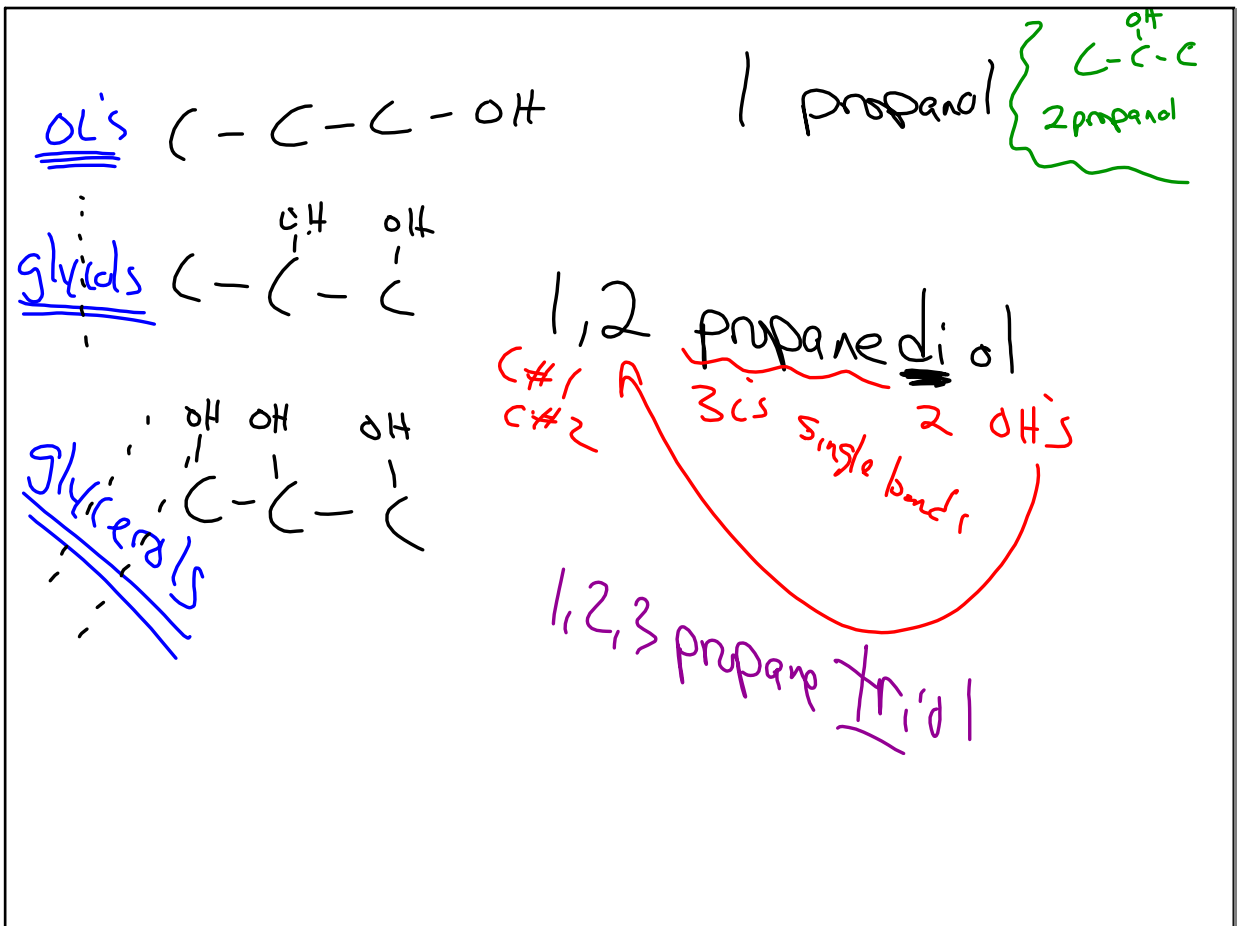 OL's C - C - C - OH 1 propanol
OH
C - C - C
2 propanol
OH OH
glycols C - C - C
1,2 propane di ol
C#1
C#2
3 C's single bonds 2 OH's
OH OH OH
glycerols C - C - C
1,2,3 propane triol